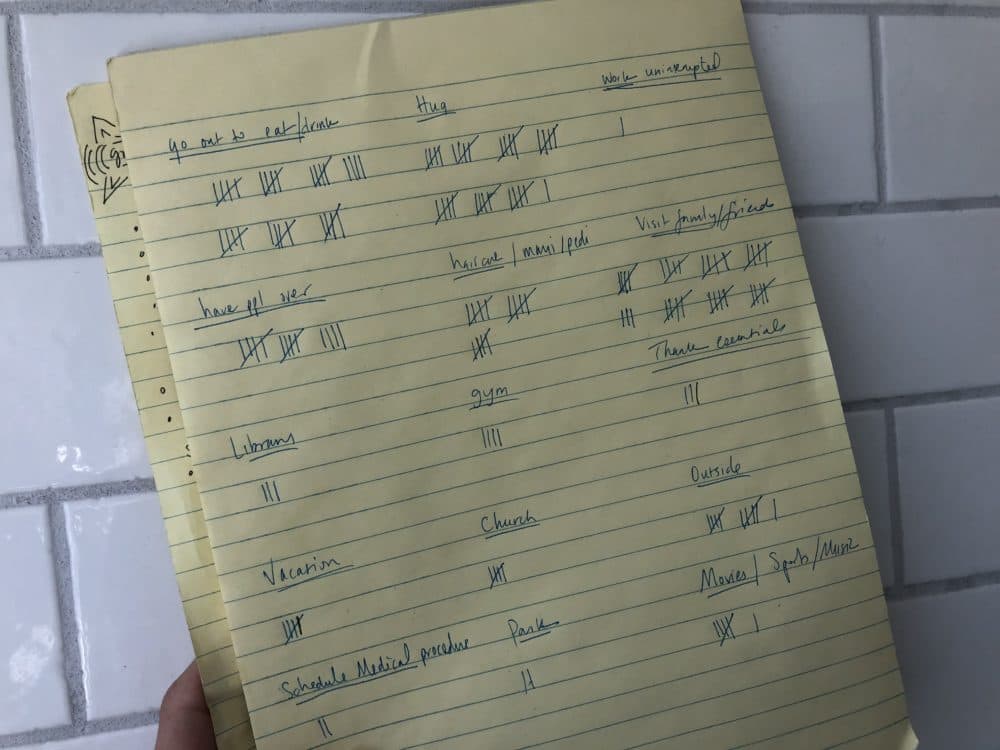 go out to eat/drink
Hug
Work uninterrupted
have ppl over
haircut / mani/pedi
Visit family/friends
Library
gym
Thank essentials
Vacation
Church
Outside
Schedule Medical procedure
Park
Movies / Sports/Music